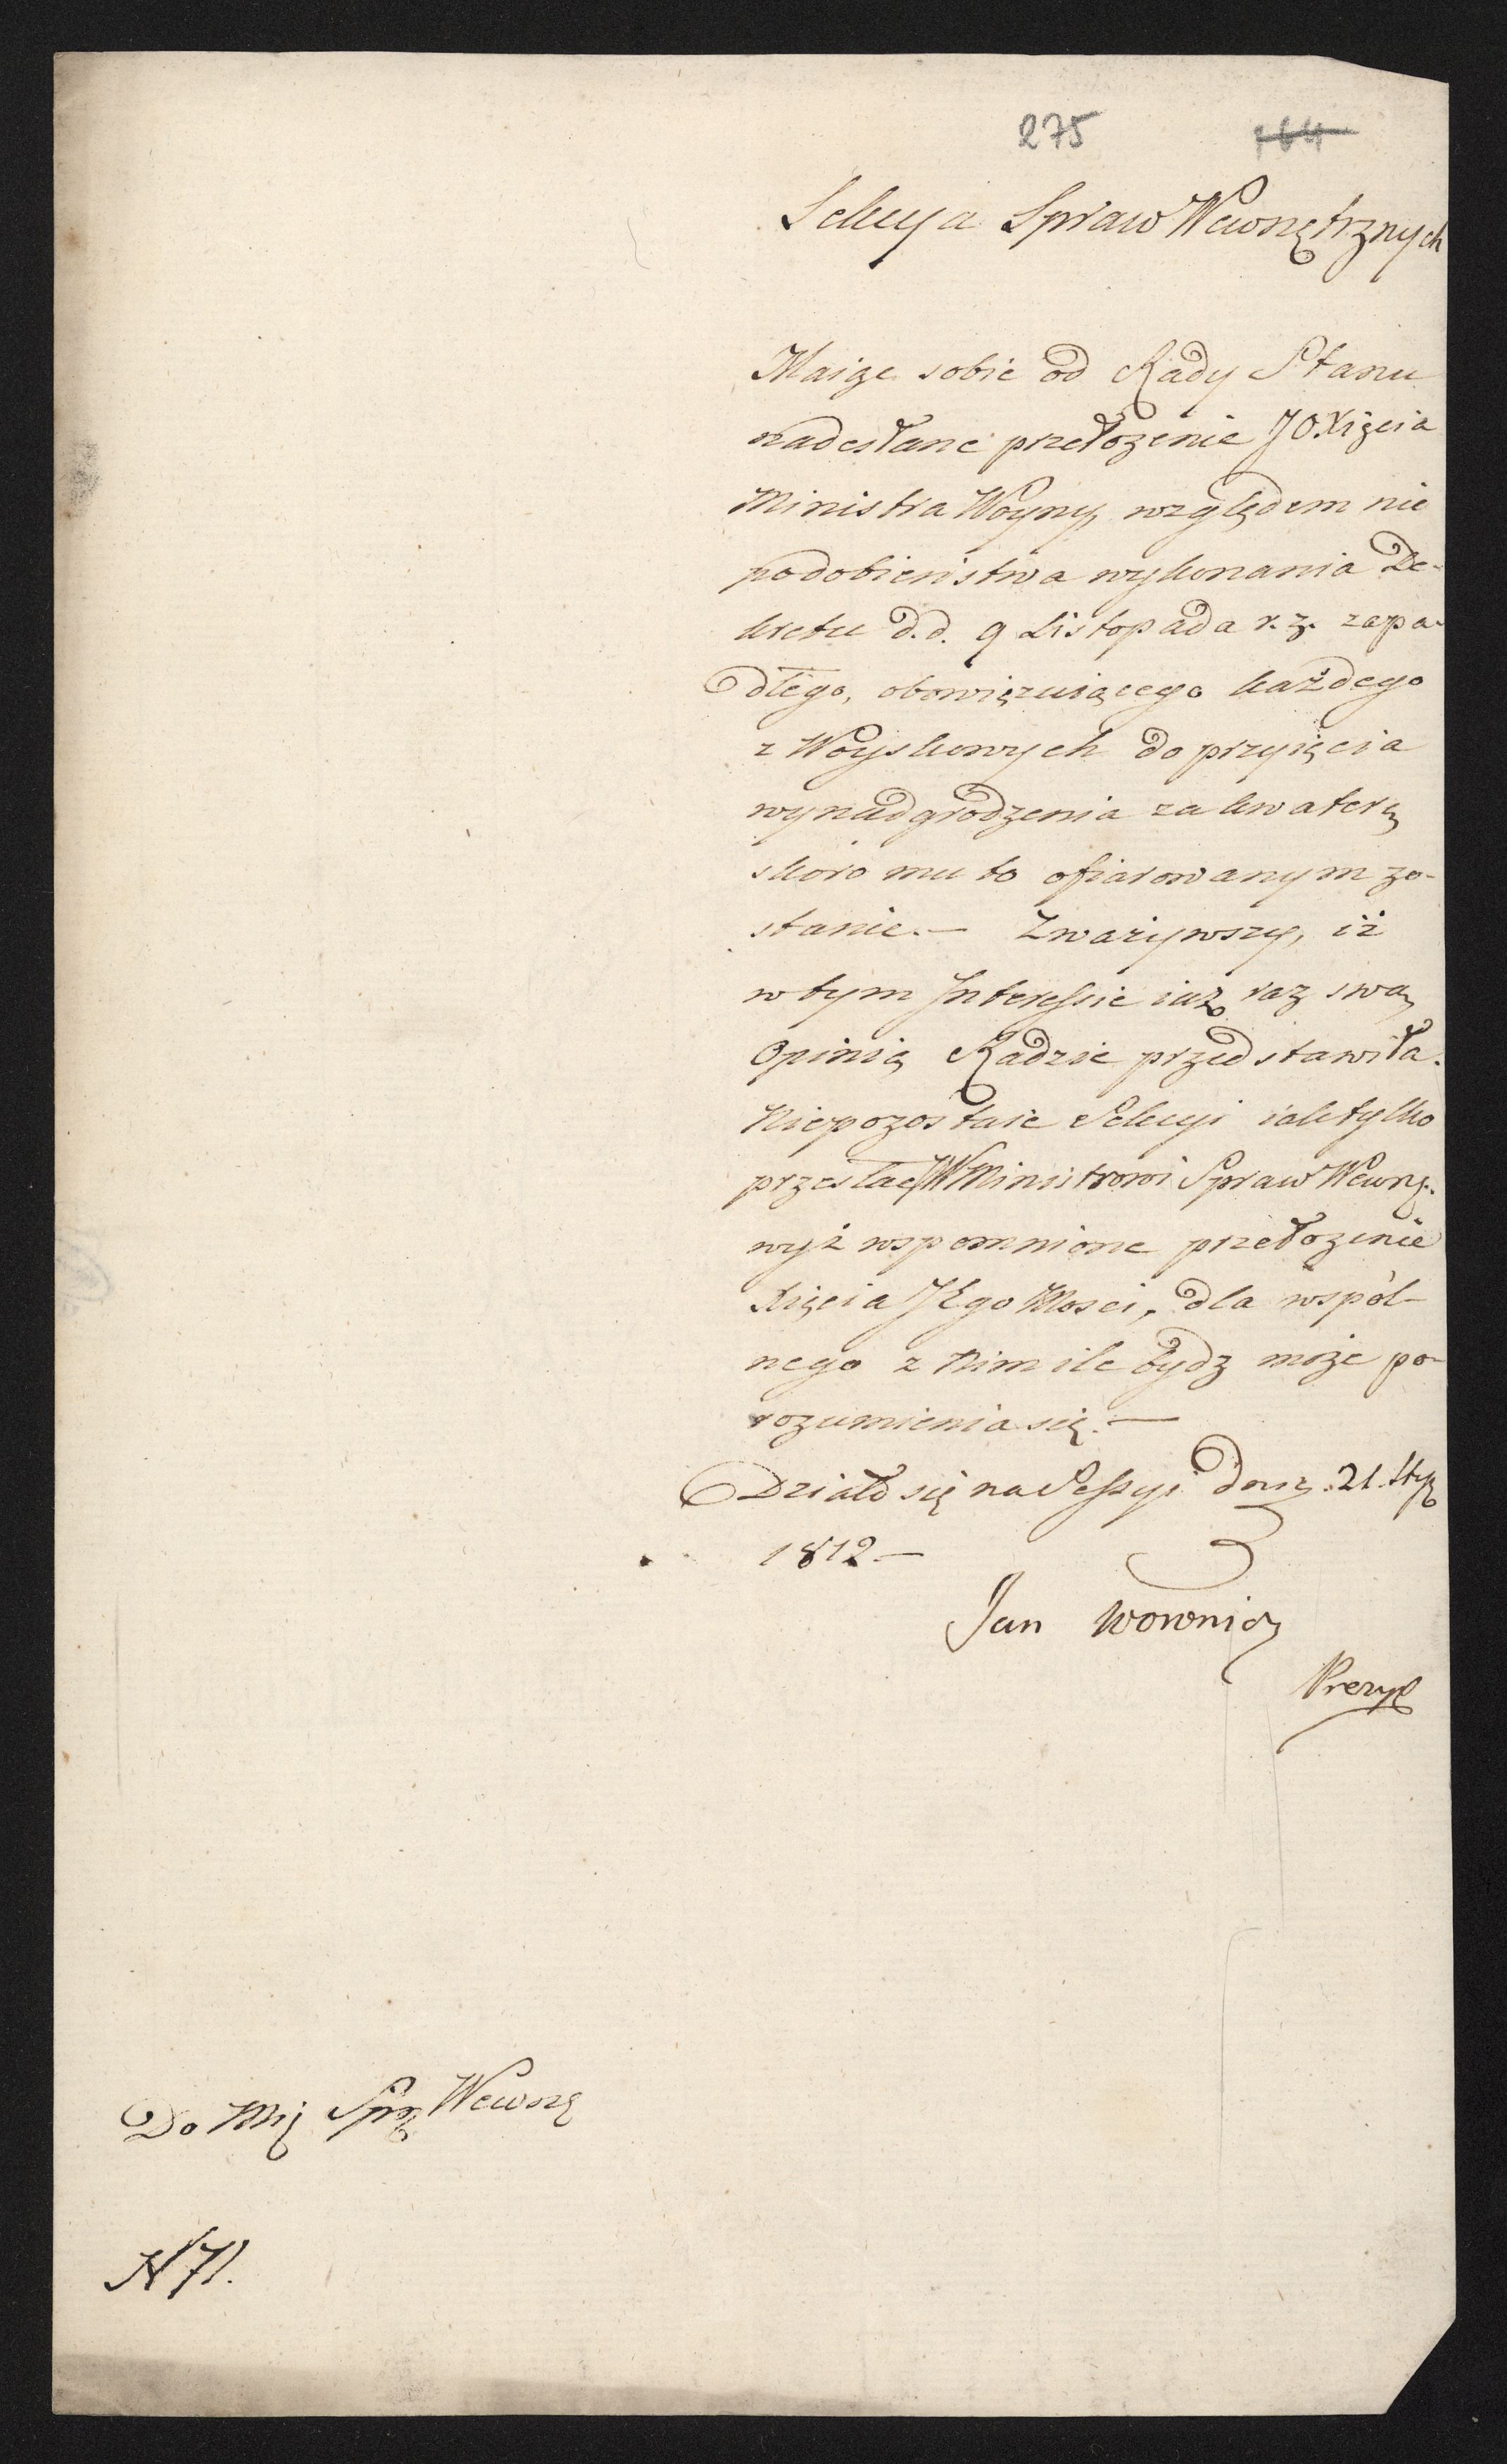 275 164
Sekcya Spraw Wewnętrznych
Maiąc sobie od Rady Stanu
nadesłane przełożenie JO Xięcia
Ministra Woyny, względem nie
podobieństwa wykonania De-
kretu d.d. 9 Listopada r. z. zapa-
dłego, obowięzuiącego każdego
z Woyskowych do przyięcia
wynadgrodzenia za kwaterę
skoro mu to ofiarowanym zo-
stanie. — Zważywszy, iż
w tym Interessie iuż raz swą
Opinią Radzie przedstawiła.
Niepozostaie Sekcyi iak tylko
przesłać JW Ministrowi Spraw Wewnę.
wyż wspomnione przełożenie
Xięcia JEgo Mosci, dla wspól-
nego z Nim ile bydz może po-
rozumienia się. —
Działo się na Sessyi dnia 21. Stycz
1812 —
Jan Woronicz
Prezyd
Do Min Spr Wewnę
N 71.